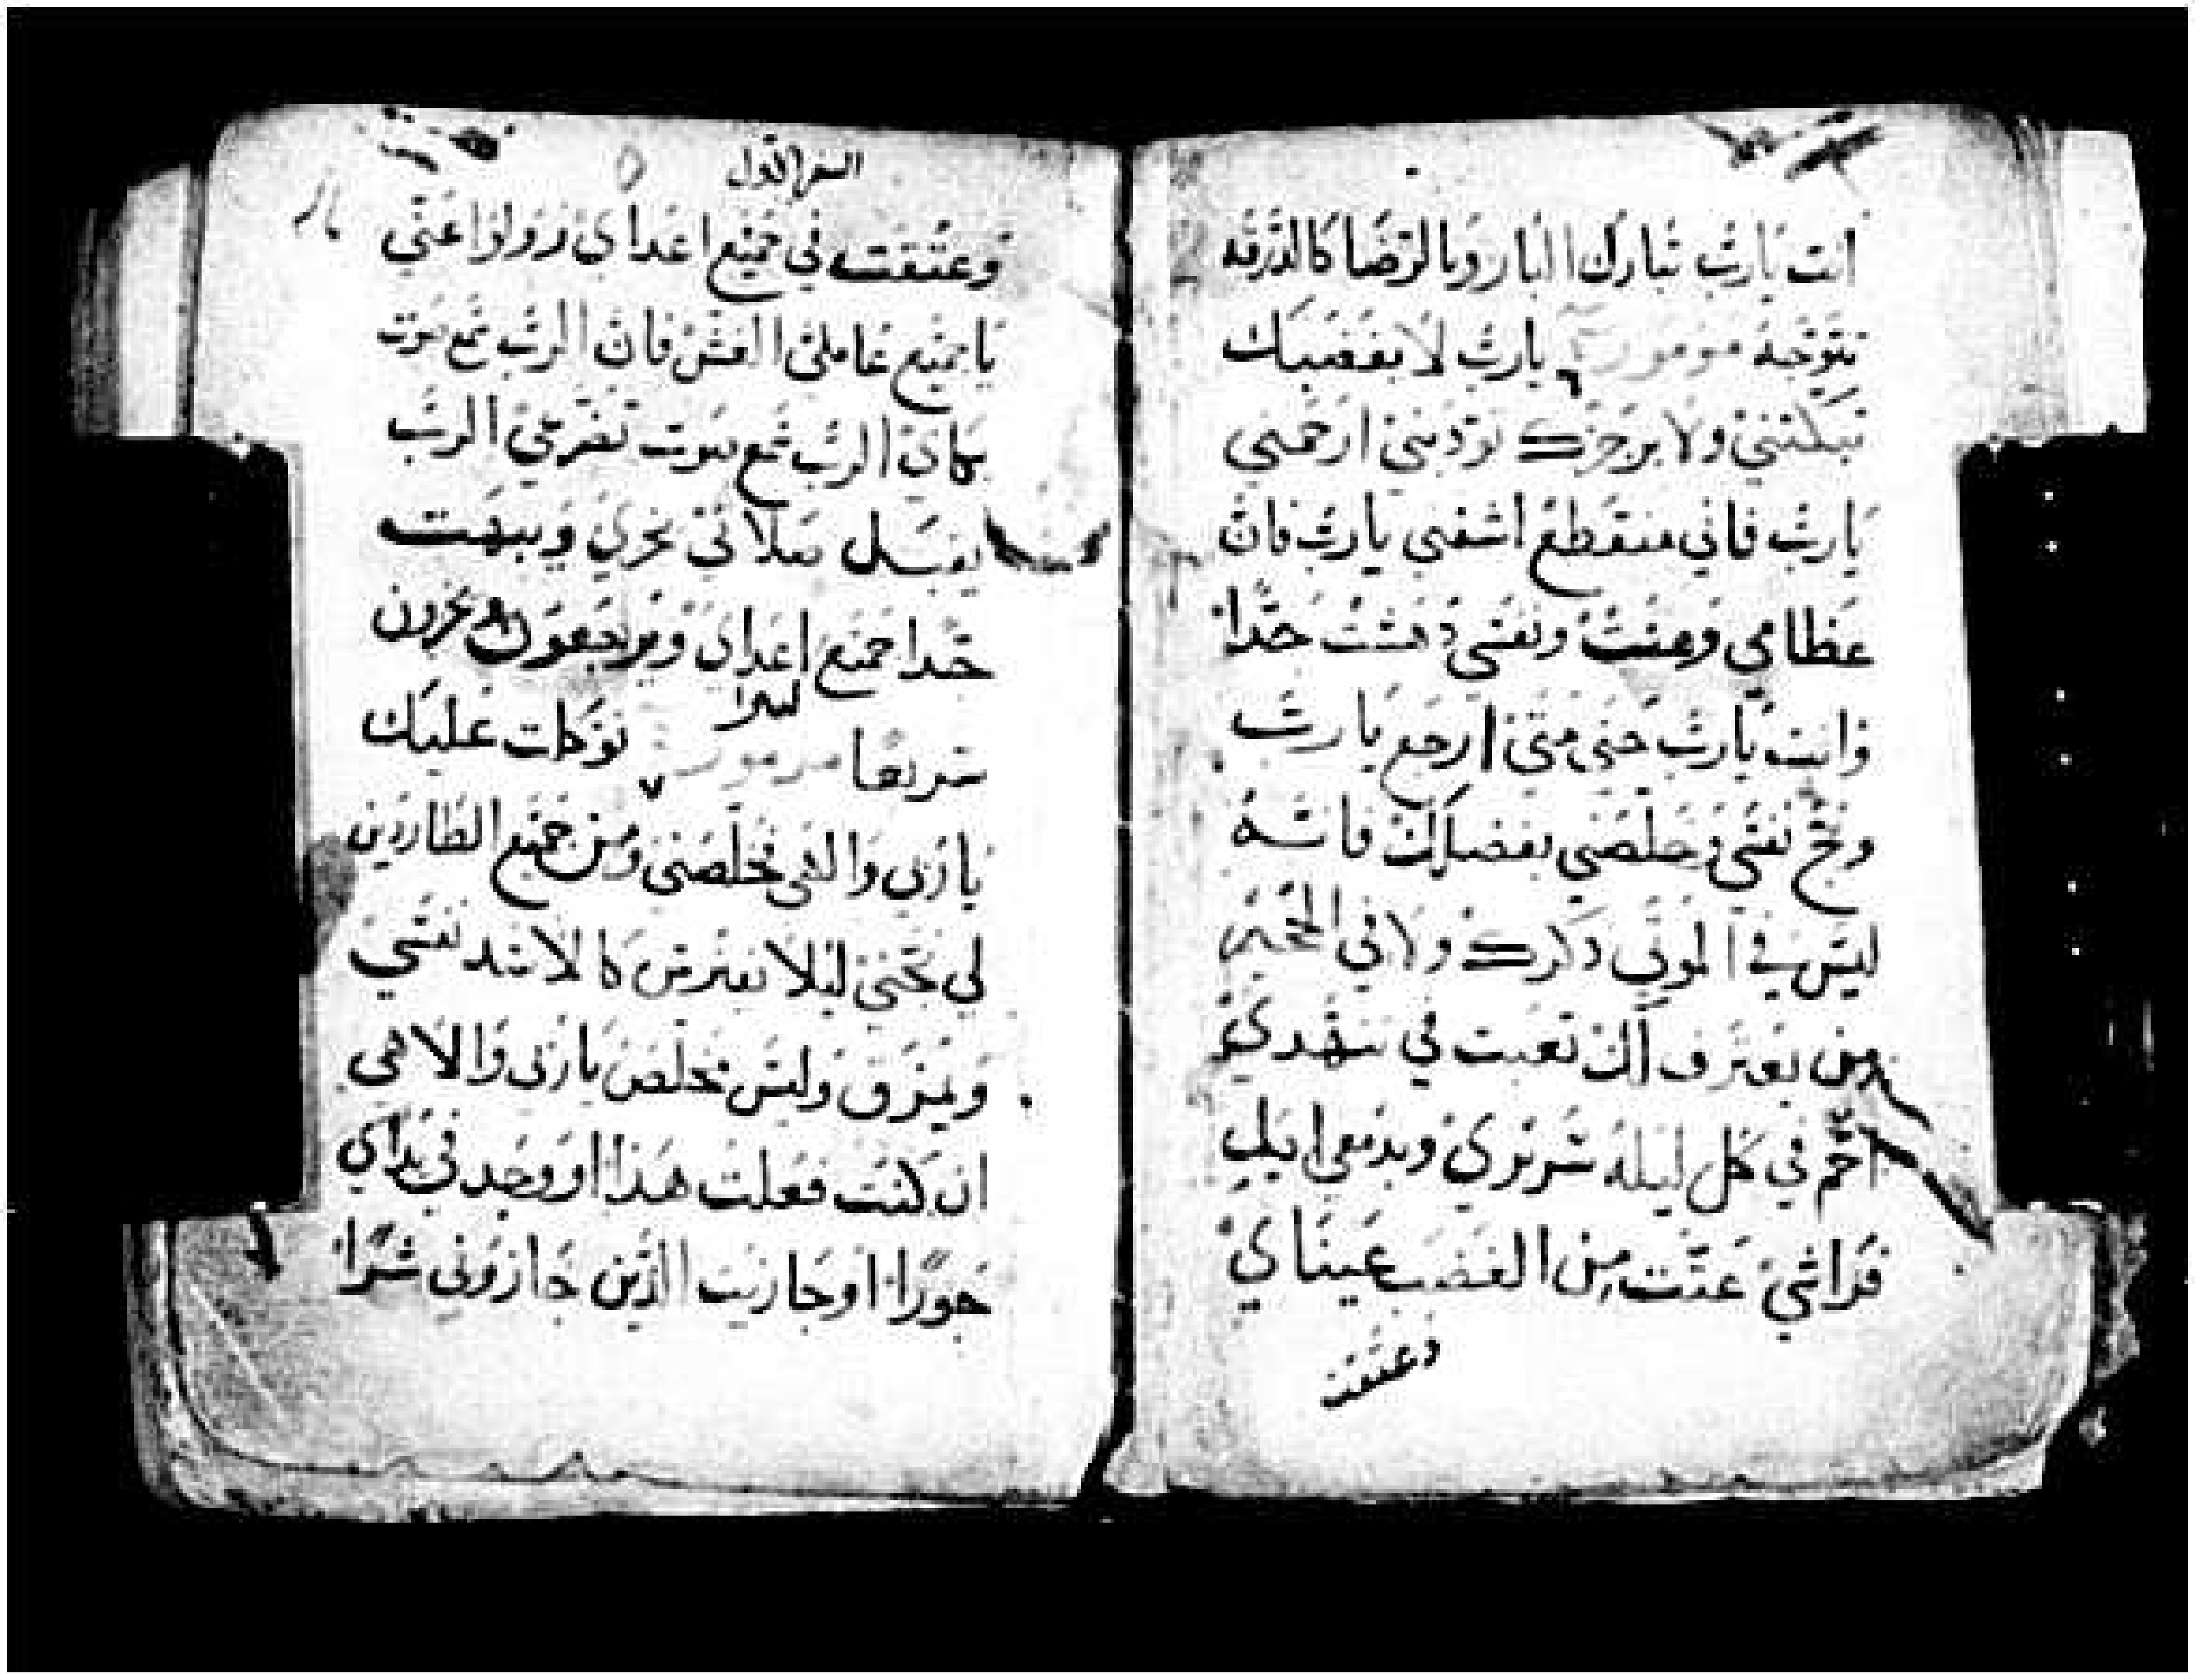 انت يارب تبارك البار وبالرضا كالدرقه
تتوجه مزمور ٦ يارب لا بغضبك
تبكتني ولا برجزك تودبني ارحمني
يارب فاني منقطع اشفني يارب فان
عظامي وهنت ونفسي دهشت جدا
وانت يارب حتى متى ارجع يارب
ونج نفسي وخلصني بفضلك فانه
ليس في الموتى ذكرك ولا في الجحيم
من يعترف لك تعبت في تنهدي
احم في كل ليله سريري وبدمعي ابل
فراشي عتت من الغضب عيناي
وعتقت
السفر الاول
وعتقت في جميع اعداي زولوا عني
يا جميع عاملي الغش فان الرب سمع صوت
بكاي الرب سمع صوت تضرعي الرب
يقبل صلاتي يخزي ويبهت
جدا جميع اعداي ويرجعون ويخزون
سريعا جدا مزمور ٧ توكلت عليك
يا ربي والهي فخلصني ومن جميع الطاردين
لي نجني ليلا يفترس كالاسد نفسي
ويمزق وليس مخلص يا ربي والاهي
ان كنت فعلت هذا او وجد في يداي
جورا او جازيت الذين جازوني شرا